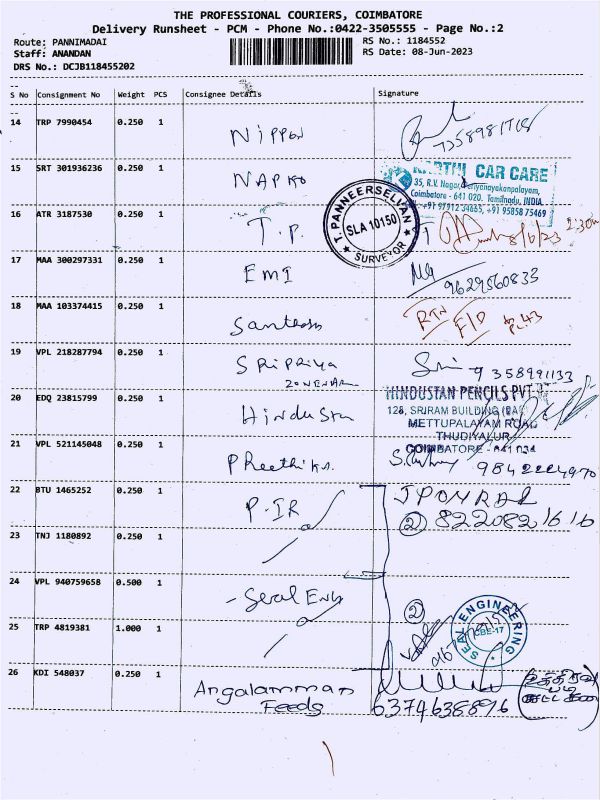 THE PROFESSIONAL COURIERS, COIMBATORE
Delivery Runsheet - PCM - Phone No.:0422-3505555 - Page No.:2
Route: PANNIMADAI
RS No.: 1184552
Staff: ANANDAN
RS Date: 08-Jun-2023
DRS No.: DCJB118455202
S No Consignment No Weight PCS Consignee Details Signature
14 TRP 7990454 0.250 1 Nippon
15 SRT 301936236 0.250 1 NAPKO
KARTHI CAR CARE
35, R.V. Nagar, Periyanayakanpalayam,
Coimbatore - 641 020. Tamilnadu, INDIA.
+91 97912 34663, +91 95858 75469
16 ATR 3187530 0.250 1 T.P.
T. PANNEERSELIAN
SLA 10150
SURVEYOR
17 MAA 300297331 0.250 1 EMI 9629560833
18 MAA 103374415 0.250 1 Santhosh RTN
19 VPL 218287794 0.250 1 Sripriya Sri 9358991133
20 EDQ 23815799 0.250 1 Hindustan
HINDUSTAN PENCILS PVT
128, SRIRAM BUILDING
METTUPALAYAM ROAD
THUDIYALUR
COIMBATORE - 641 034
21 VPL 521145048 0.250 1 Preethika.
22 BTU 1465252 0.250 1 P-IR
② 8220821616
23 TNJ 1180892 0.250 1
24 VPL 940759658 0.500 1 - Seal Eng ②
SEAL ENGINEERING
CBE-17
25 TRP 4819381 1.000 1
26 KDI 548037 0.250 1 Angalamman
Feeds 6374638896